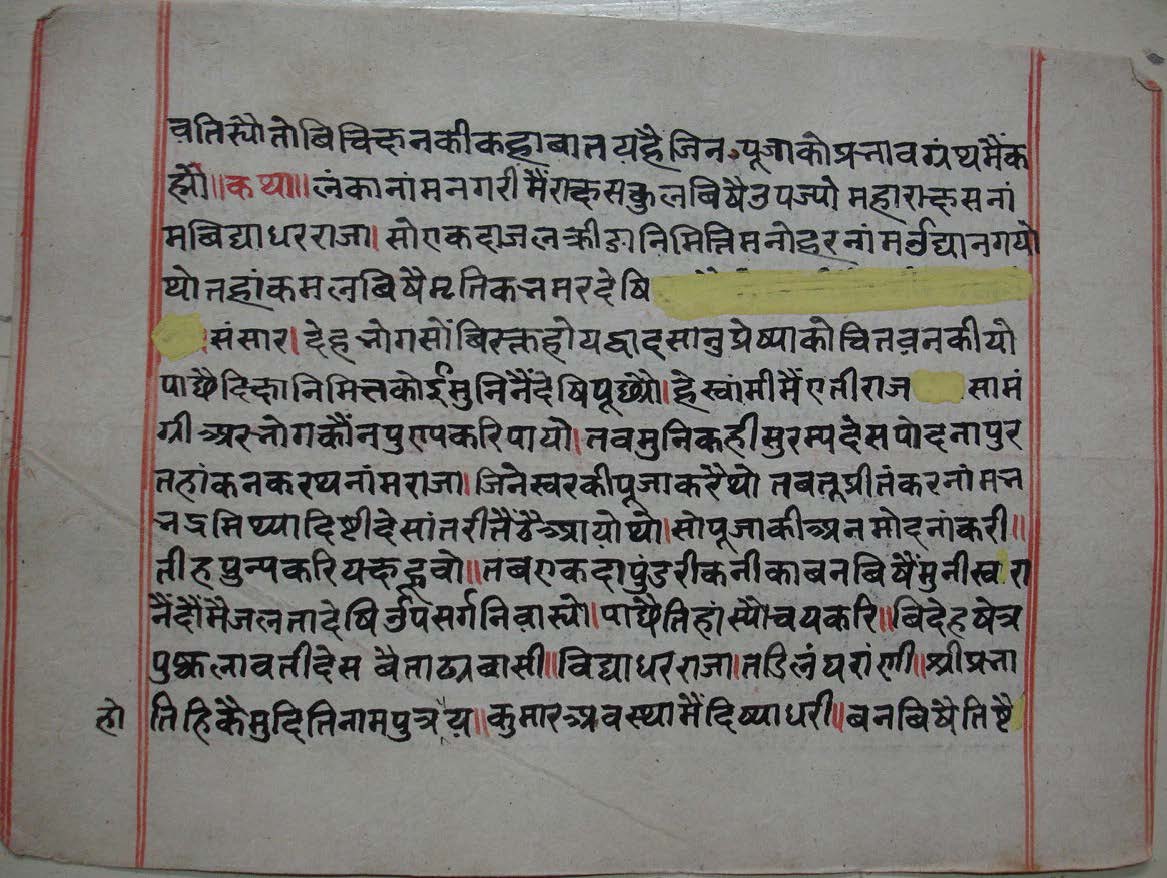 वतिस्यौ तो बिचिक्षन की कहा बात यहै जिन पूजा को प्रभाव ग्रंथ मैं क
ह्यौ॥कथा॥लंका नांम नगरी मैं राक्षस कुल बिषै उपज्यो महाराक्षस नां
म बिद्याधर राजा।सो एकदा जल क्रीडा निमित्ति मनोहर नांम उद्यान गयो
थो तहां कमल बिषै मृतिक भ्रमर देषि
संसार।देह भोग सों बिरक्त होय द्वादसानुप्रेष्या को चितवन कीयो
पाछै दिक्षा निमित्त कोई मुनि नैं देषि पूछ्यौ।हे स्वांमी मैं एती राज सामं
ग्री अर भोग कौंन पुण्य करि पायो।तव मुनि कही सुरम्य देस पोदनापुर
तहां कनकरथ नांम राजा।जिनेस्वर की पूजा करै थो तब तू प्रीतंकर नांम भ
भद्र मिथ्यादिष्टी देसांतरी तैं ठै आयो थो।सो पूजा की अनमोदनां करी॥
तीह पुन्य करि यक्ष हूवो॥तब एकदा पुंडरीकनी का बन बिषैं मुनीस्व रा
नैं दौं मै जलता देषि उपसर्ग निवास्यो।पाछै तिहां स्यौ चय करि॥बिदेह षेत्र
पुष्कलावती देस बैताढ्य बासी॥विद्याधर राजा।तडिलंघ रांणी॥श्रीप्रभा
तिहि कै मुदिति नाम पुत्र य॥कुमार अवस्था मैं दिष्या धरी॥बन बिषै तिष्टै
हो